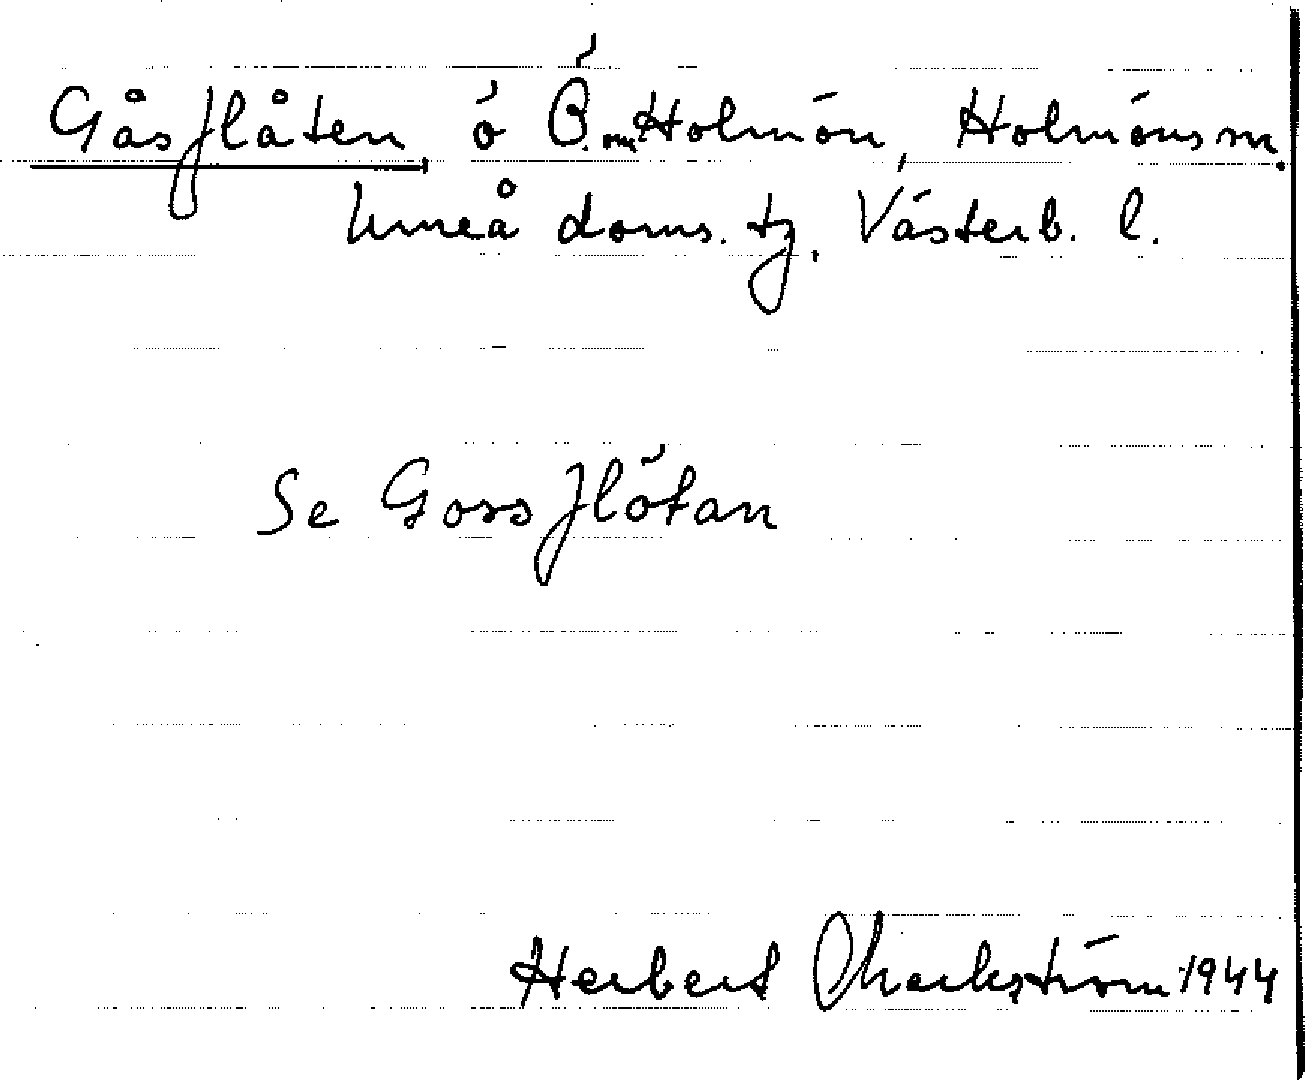 Gåsflåten, ö Ö. om Holmön, Holmöns sn.
Umeå doms. tg, Västerb. l.
Se Gossflötan
Herbert Markström 1944